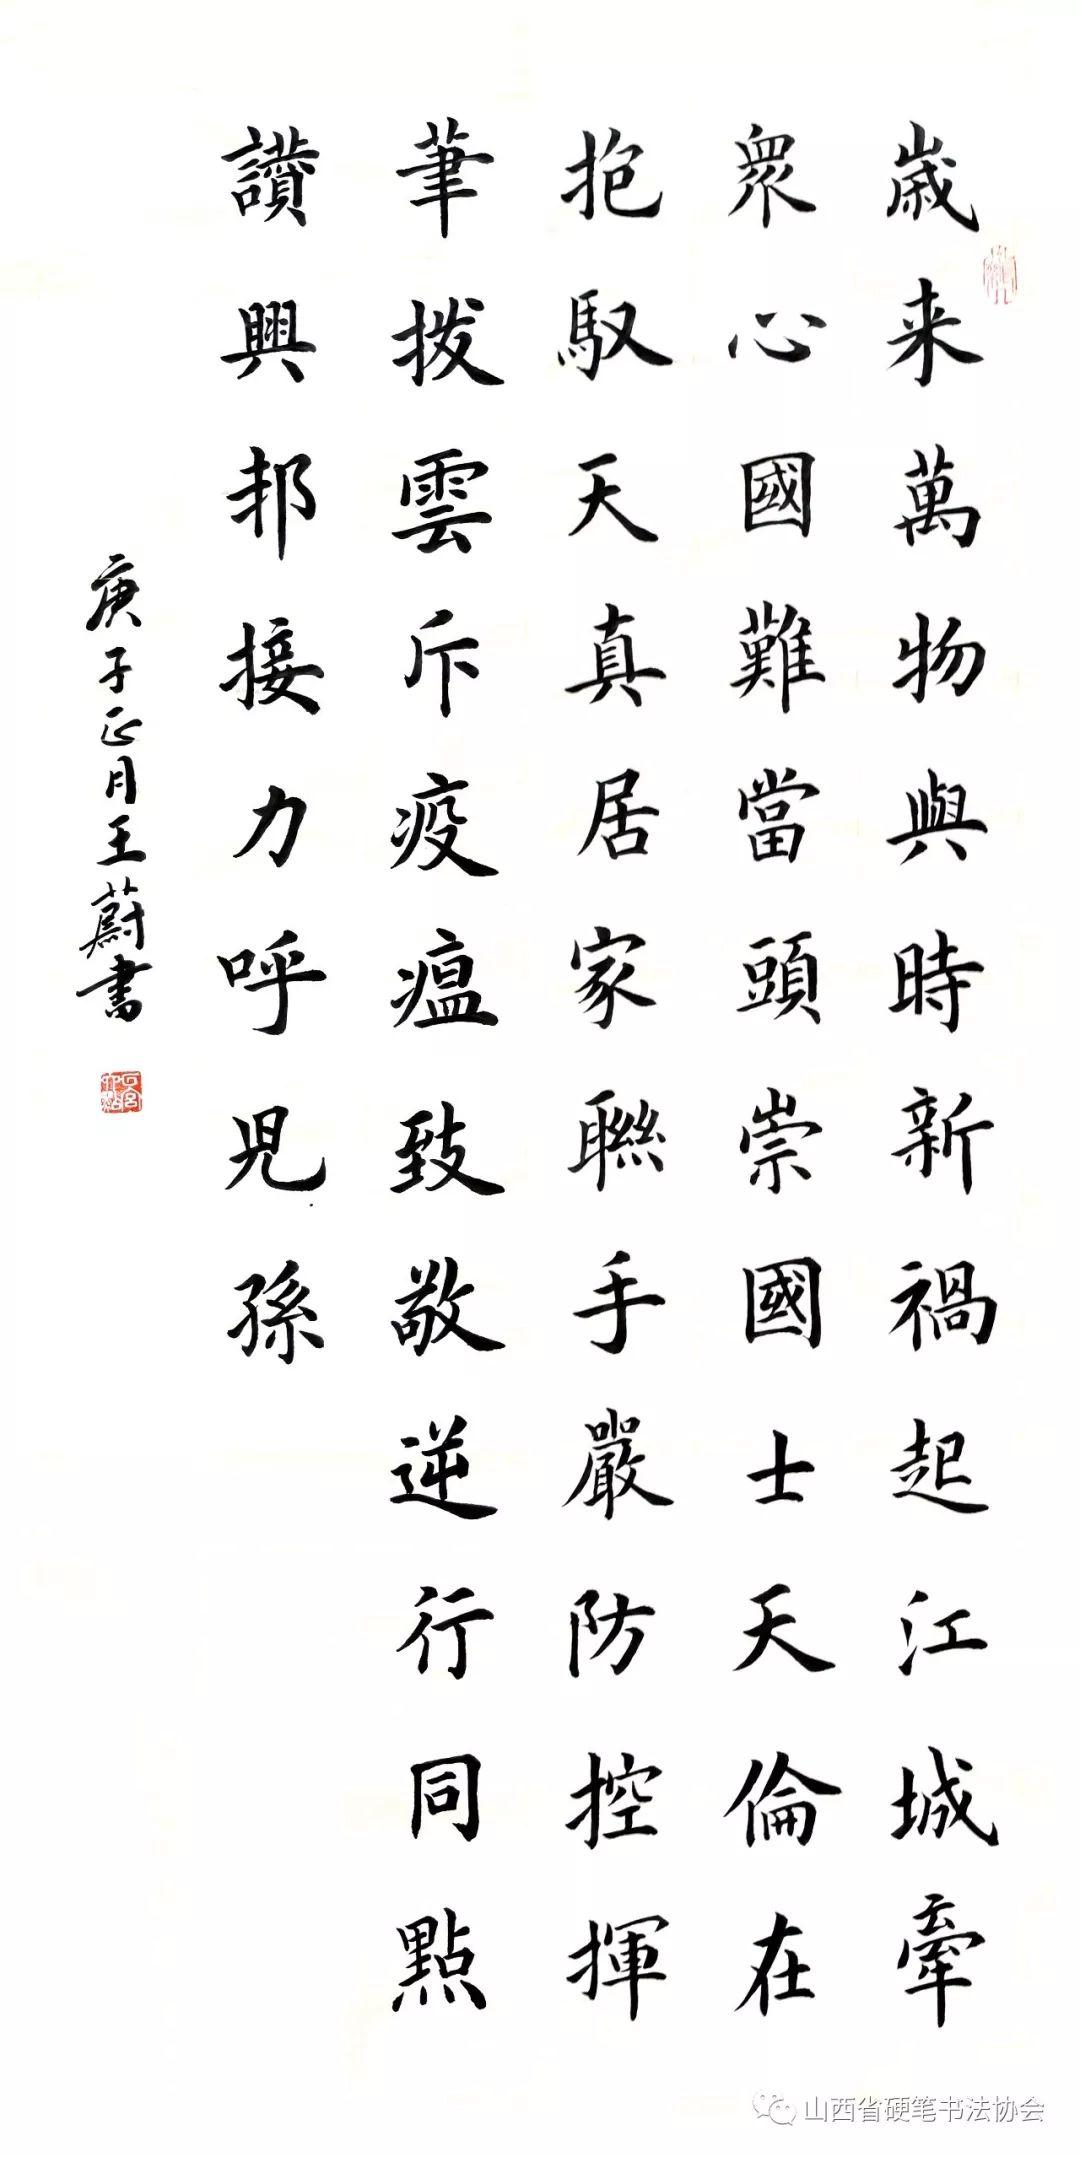 歲来萬物與時新禍起江城牽
衆心國難當頭崇國士天倫在
抱馭天真居家聯手嚴防控揮
筆拨雲斥疫瘟致敬逆行同點
讃興邦接力呼児孫
庚子正月王蔚書
山西省硬笔书法协会